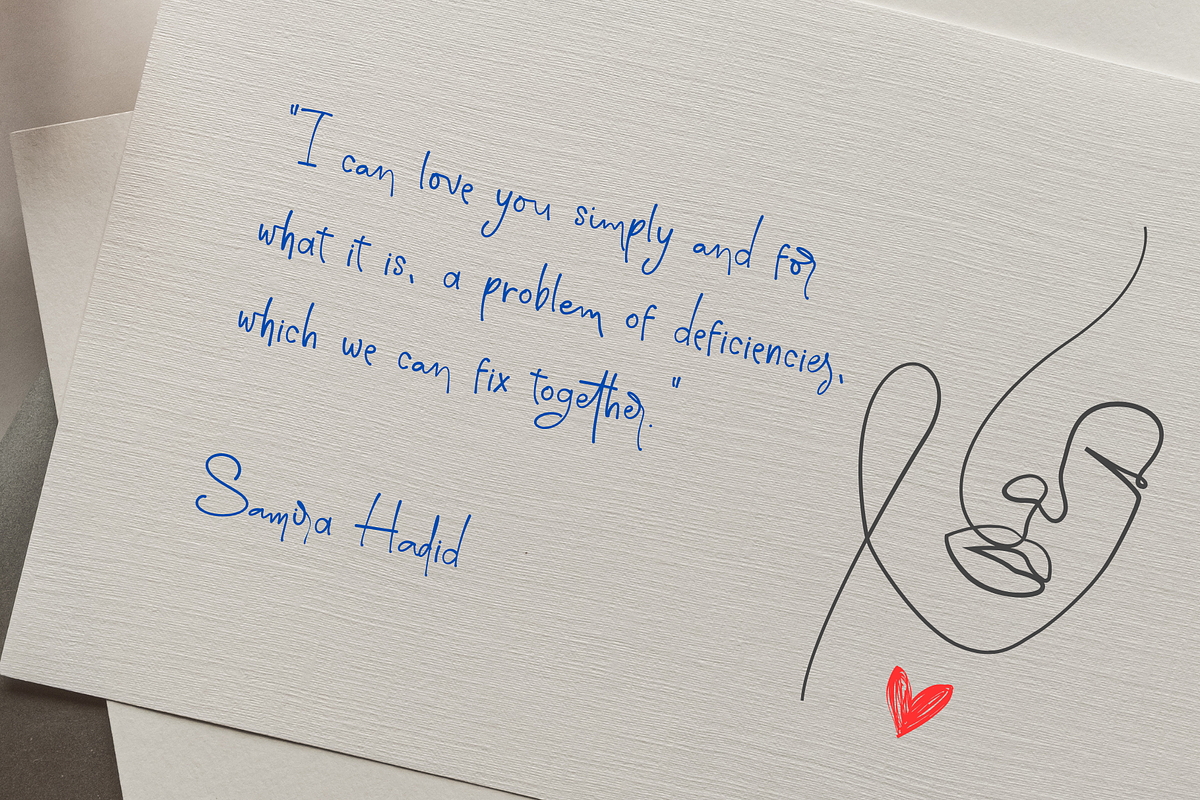 "I can love you simply and for
what it is, a problem of deficiencies,
which we can fix together."
Samira Hadid